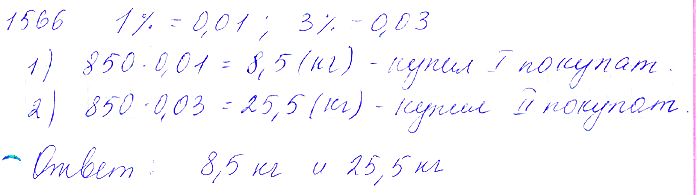 1566 1% = 0,01; 3% - 0,03
1) 850·0,01 = 8,5 (кг) - купил I покупат.
2) 850·0,03 = 25,5 (кг) - купил II покупат.
Ответ: 8,5 кг и 25,5 кг